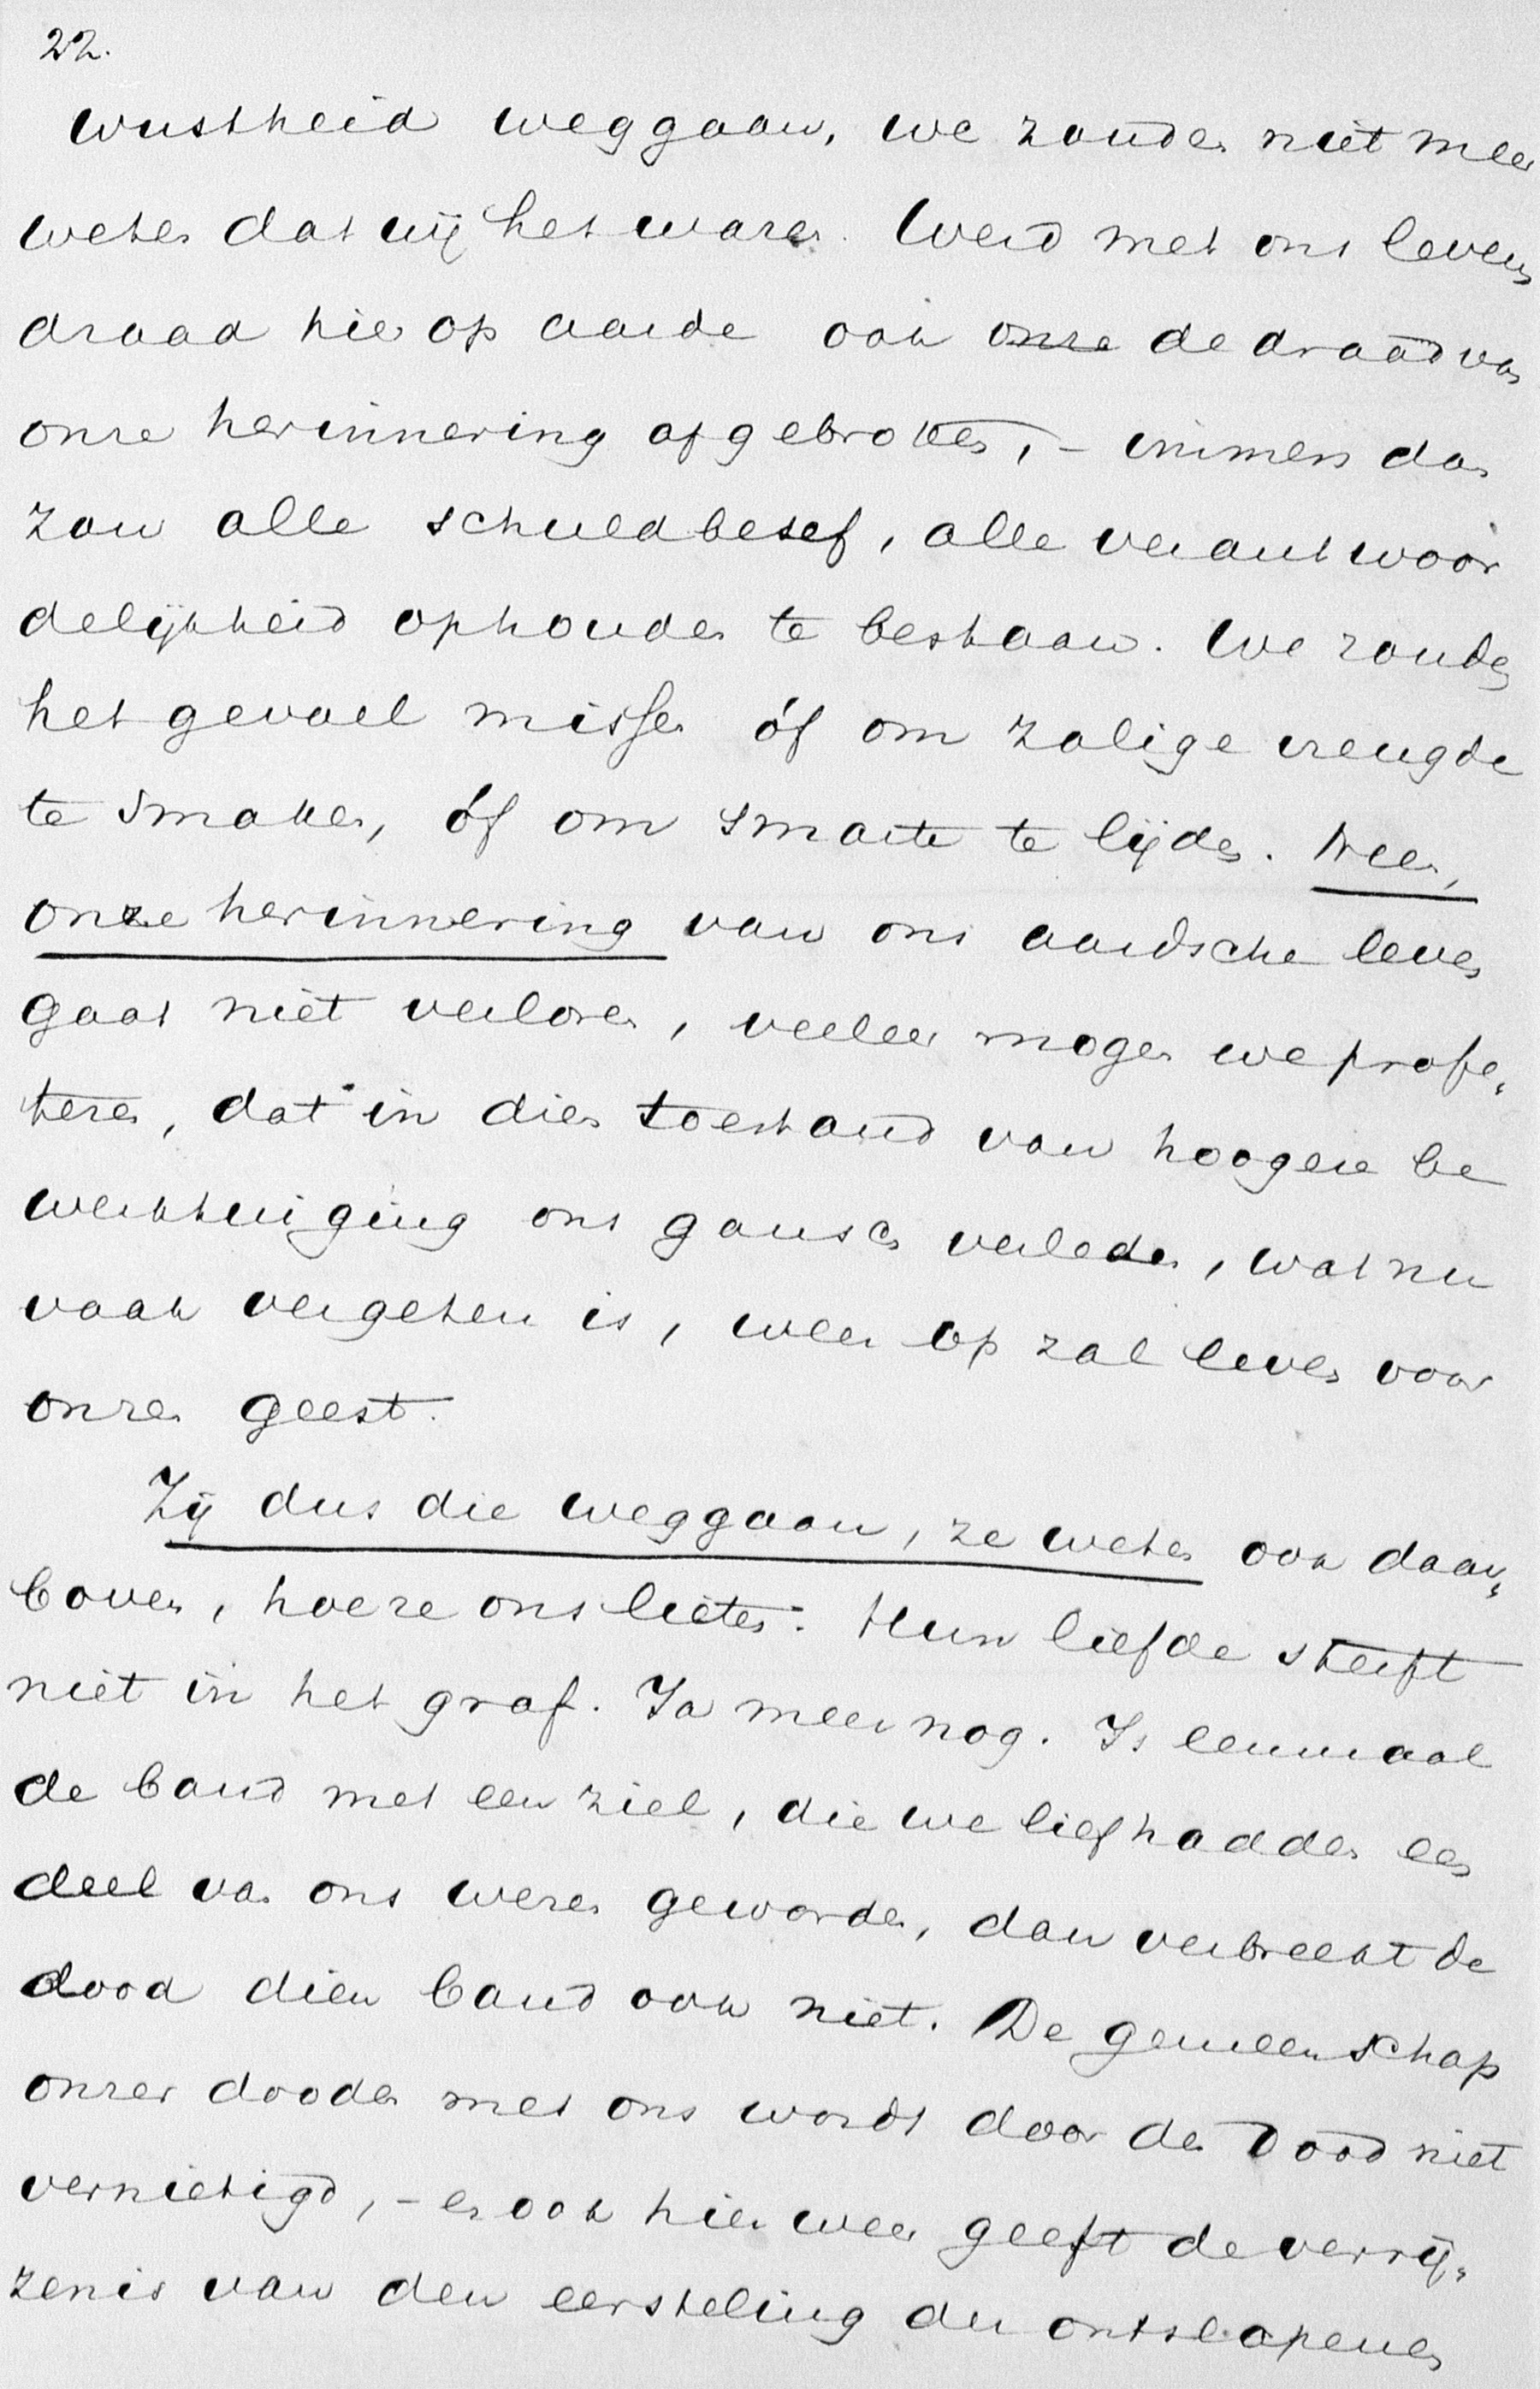 22.
wustheid weggaan, we zouden niet meer
weten dat wij het waren. Werd met ons levens
draad hier op aarde ook onze de draad van
onze herinnering afgebroken, - immers dan
zou alle schuldbesef, alle verantwoor
delijkheid ophouden te bestaan. We zouden
het gevoel missen óf om zalige vreugde
te smaken, óf om smarte te lijden. Neen,
onze herinnering van ons aardsche leven
gaat niet verloren, veeleer mogen we profe-
teren, dat in dien toestand van hoogere be
werktuiging ons gansch verleden, wat nu
vaak vergeten is, weer op zal leven voor
onzen geest.
Zij dus die weggaan, ze weten ook daar-
boven, hoe ze ons lieten. Hun liefde sterft
niet in het graf. Ja meer nog. Is eenmaal
de band met een ziel, die we liefhadden een
deel van ons wezen geworden, dan verbreekt de
dood dien band ook niet. De gemeenschap
onzer dooden met ons wordt door den Dood niet
vernietigd, - en ook hier weer geeft de verrij-
zenis van den eersteling der ontslapenen